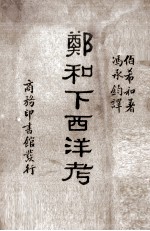 伯希和著
馮承鈞譯
鄭和下西洋考
商務印書館發行